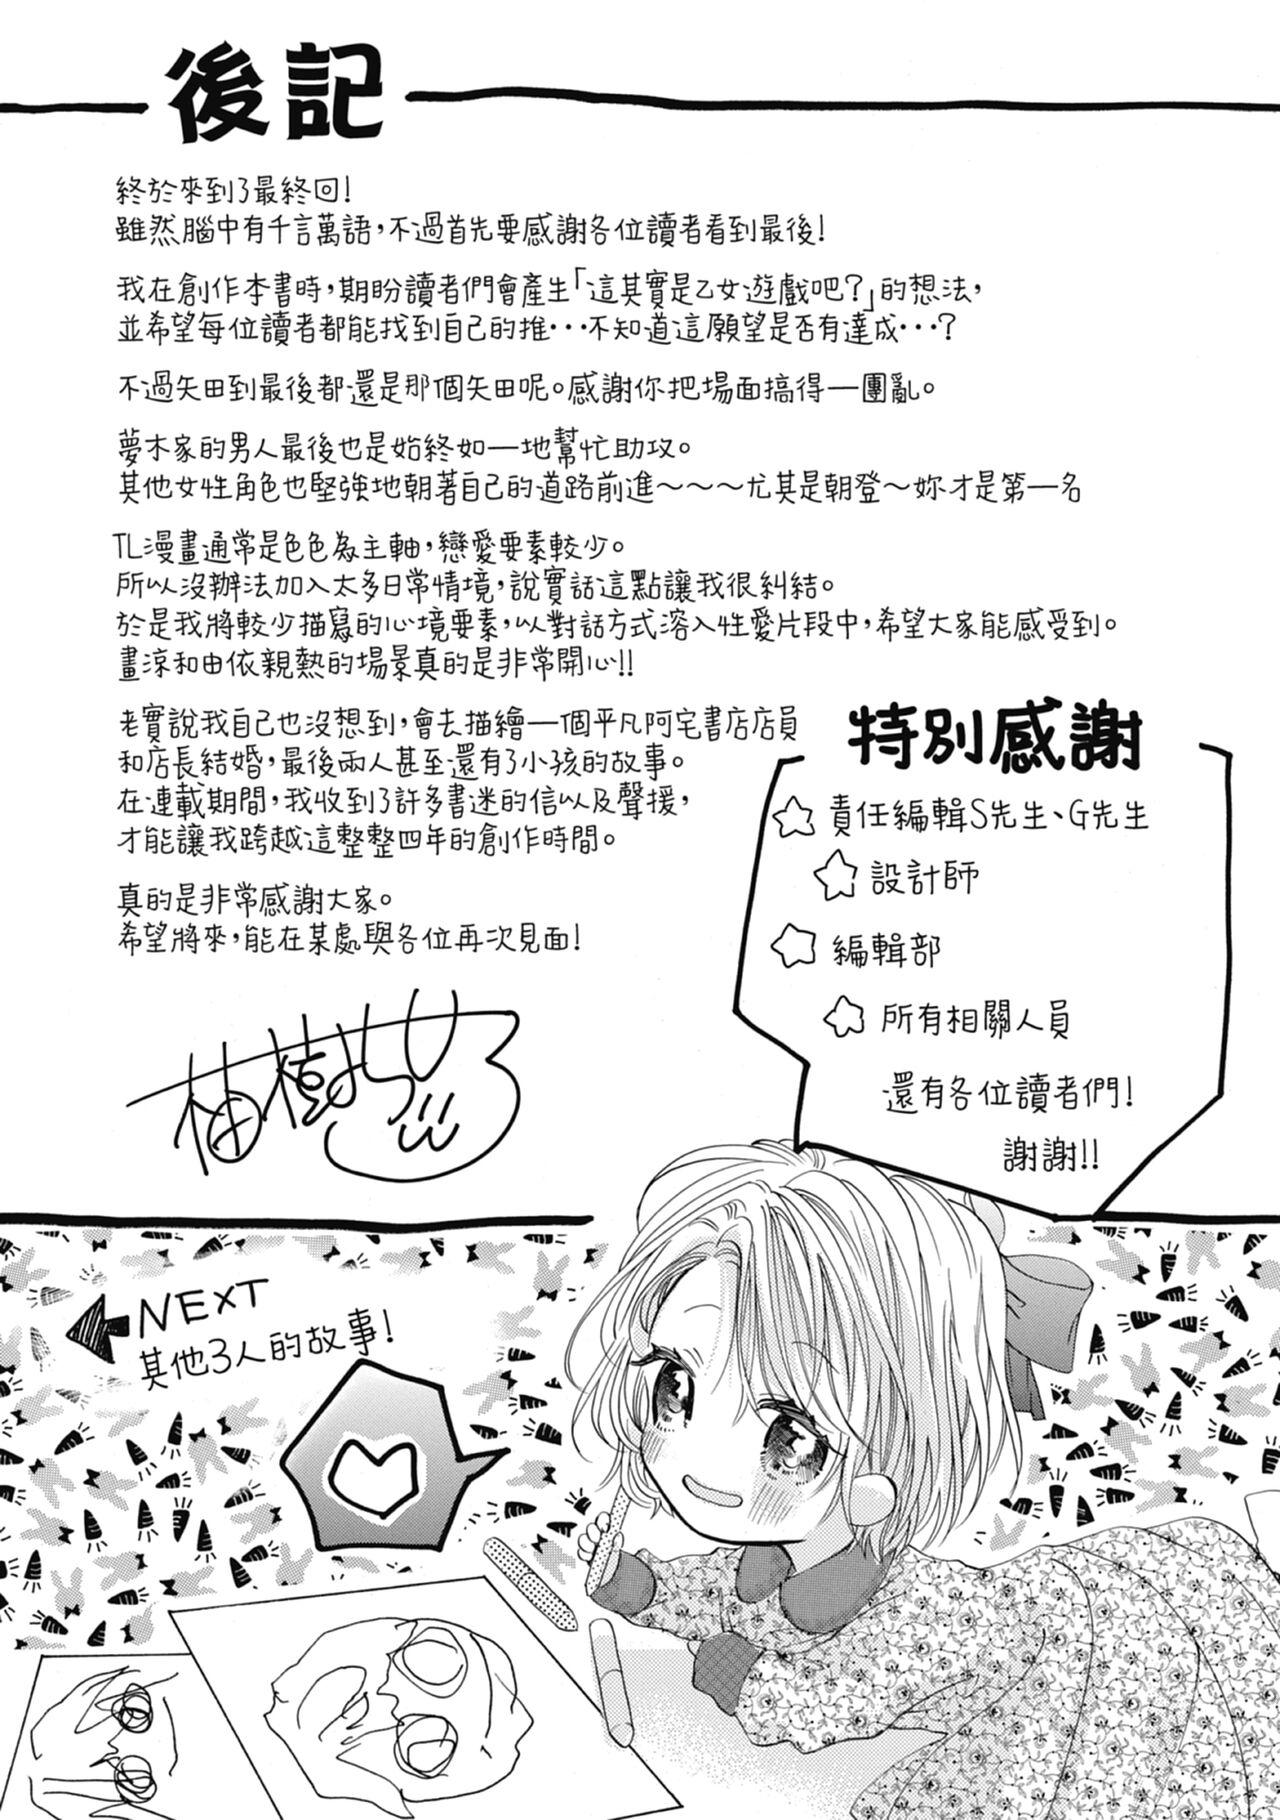 後記
終於來到了最終回!
雖然腦中有千言萬語,不過首先要感謝各位讀者看到最後!
我在創作本書時,期盼讀者們會產生「這其實是乙女遊戲吧?」的想法,
並希望每位讀者都能找到自己的推···不知道這願望是否有達成···?
不過矢田到最後都還是那個矢田呢。感謝你把場面搞得一團亂。
夢木家的男人最後也是始終如一地幫忙助攻。
其他女性角色也堅強地朝著自己的道路前進～～～尤其是朝登～妳才是第一名
TL漫畫通常是色色為主軸,戀愛要素較少。
所以沒辦法加入太多日常情境,說實話這點讓我很糾結。
於是我將較少描寫的心境要素,以對話方式溶入性愛片段中,希望大家能感受到。
畫涼和由依親熱的場景真的是非常開心!!
老實說我自己也沒想到,會去描繪一個平凡阿宅書店店員
和店長結婚,最後兩人甚至還有了小孩的故事。
在連載期間,我收到了許多書迷的信以及聲援,
才能讓我跨越這整整四年的創作時間。
真的是非常感謝大家。
希望將來,能在某處與各位再次見面!
特別感謝
責任編輯S先生、G先生
設計師
編輯部
所有相關人員
還有各位讀者們!
謝謝!!
NEXT
其他3人的故事!